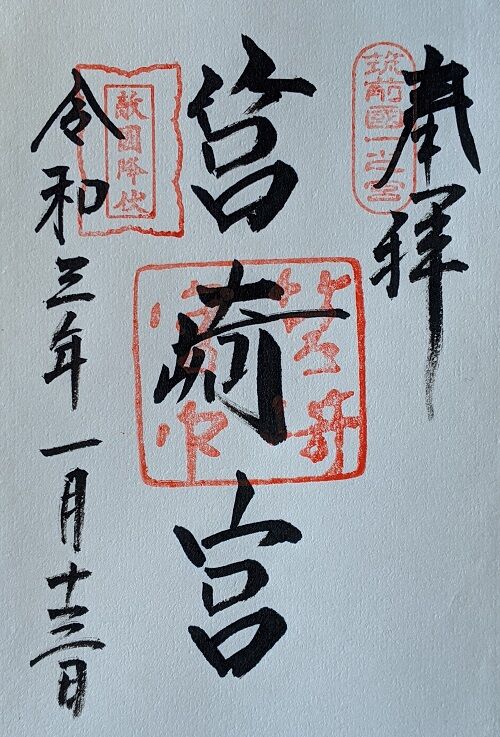 奉拝
筑前國一之宮
筥崎宮
筥崎宮印
敵國降伏
令和三年一月十三日